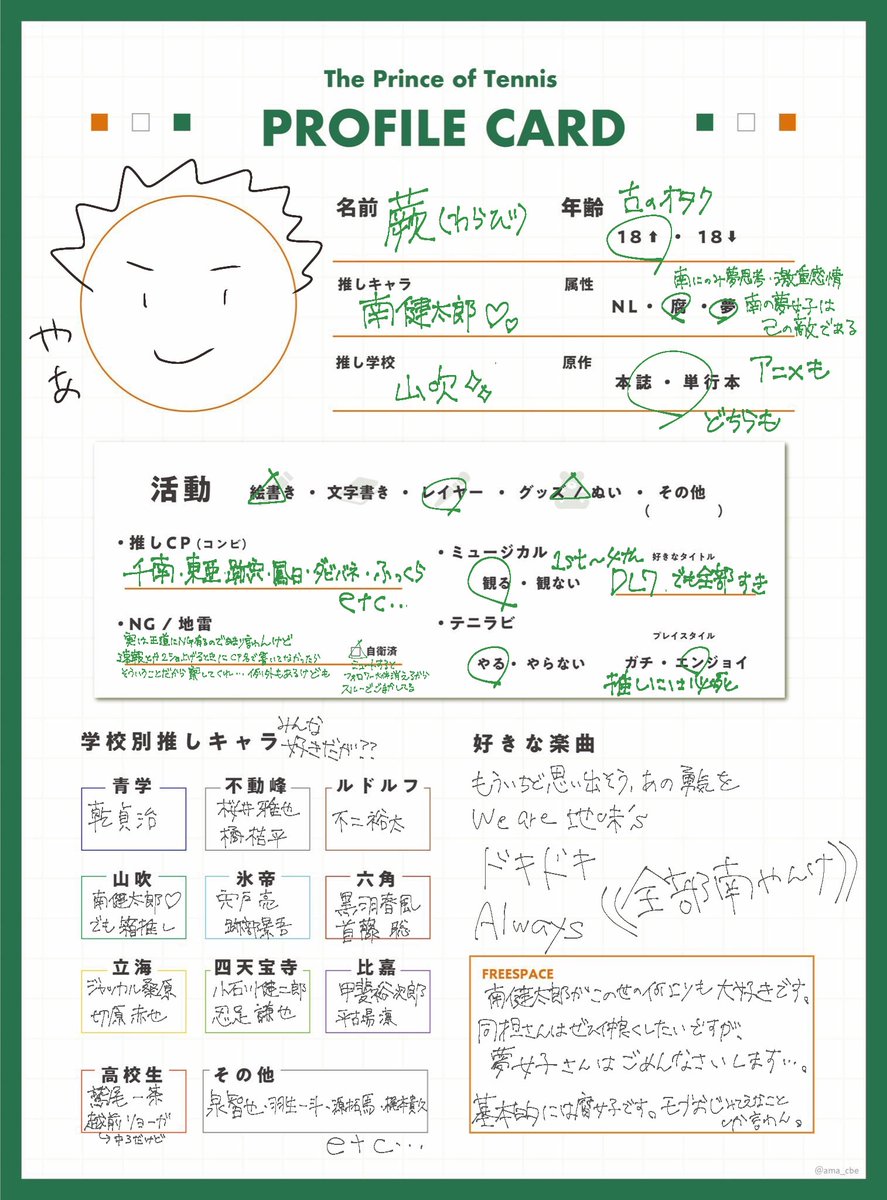 The Prince of Tennis
PROFILE CARD
やあ
名前 蕨(わらび)
年齢 古のオタク
18↑・18↓
推しキャラ
南健太郎♡♡
属性 南にのみ夢思考・激重感情
NL・腐・夢 南の夢女子は
己の敵である
推し学校
山吹
原作
本誌・単行本 アニメも
どちらも
活動 絵書き・文字書き・レイヤー・グッズ/ぬい・その他
( )
・推しCP(コンビ)
千南・東亜・跡宍・鳳日・ダビバネ・ふっくら
etc…
・ミュージカル 1st〜4th 好きなタイトル
観る・観ない DL7.でも全部すき
・NG/地雷
実は王道にNG有るのであまり言わんけど
そういうことだから察してくれ…例外もあるけども
自衛済
ミュートすると
フォロワー大体消えるから
スルーどごまかしてる
・テニラビ
やる・やらない
プレイスタイル
ガチ・エンジョイ
推しには必死
学校別推しキャラ みんな
好きだが??
青学
乾貞治
不動峰
桜井雅也
橘桔平
ルドルフ
不二裕太
山吹
南健太郎♡
でも箱推し
氷帝
宍戸亮
跡部景吾
六角
黒羽春風
首藤聡
立海
ジャッカル桑原
切原赤也
四天宝寺
小石川健二郎
忍足謙也
比嘉
甲斐裕次郎
平古場凛
高校生
鷲尾一茶
越前リョーガ
→中3だけど
その他
泉智也・羽生一斗・源拓馬・橋本貴久
etc…
好きな楽曲
もういちど思い出そう,あの勇気を
We are 地味's
ドキドキ
Always
((全部南やんけ))
FREESPACE
南健太郎がこの世の何よりも大好きです。
同担さんはぜひ仲良くしたいですが、
夢女子さんはごめんなさいします…。
基本的には腐女子です。モブおじてえなこと
しか言わん。
@ama_cbe